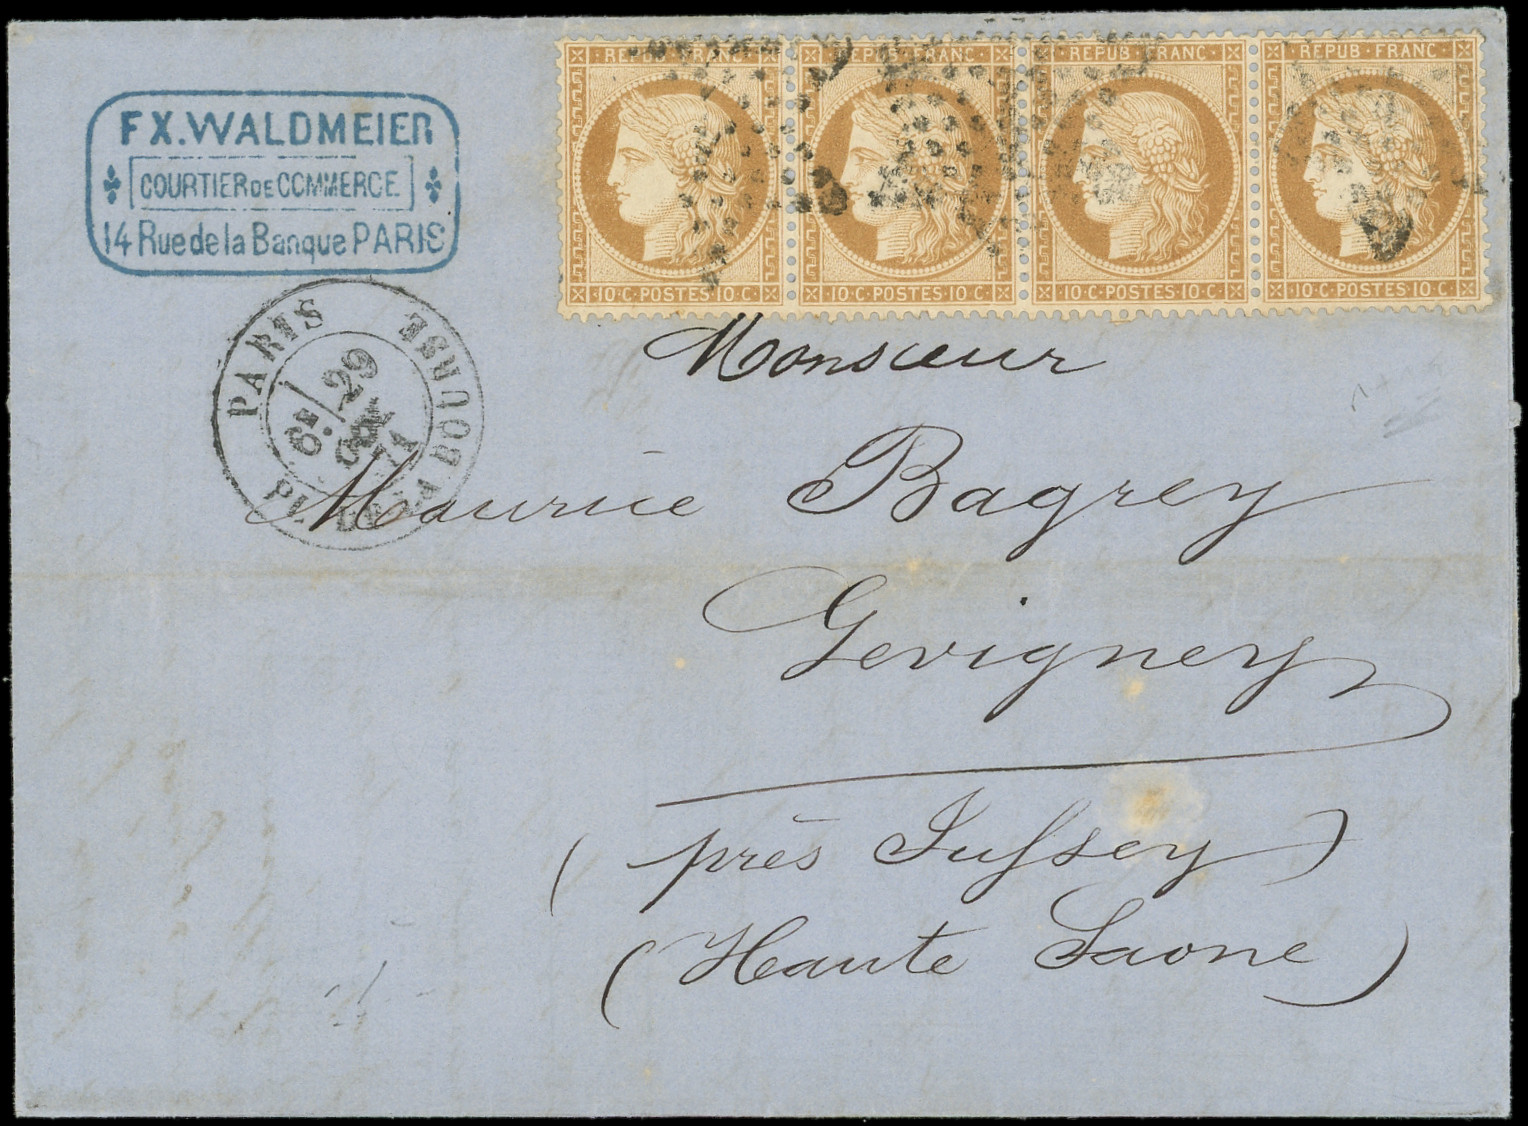 REPUB·FRANC REPUB·FRANC REPUB·FRANC REPUB·FRANC
10·C·POSTES·10·C· 10·C·POSTES·10·C· 10·C·POSTES·10·C· 10·C·POSTES·10·C·
F X. WALDMEIER
COURTIER DE COMMERCE
14 Rue de la Banque PARIS
PARIS
PL. DE LA BOURSE
6E 29
71
Monsieur
Maurice Bagrey
Gevigney
( près Jussey )
( Haute Saone )